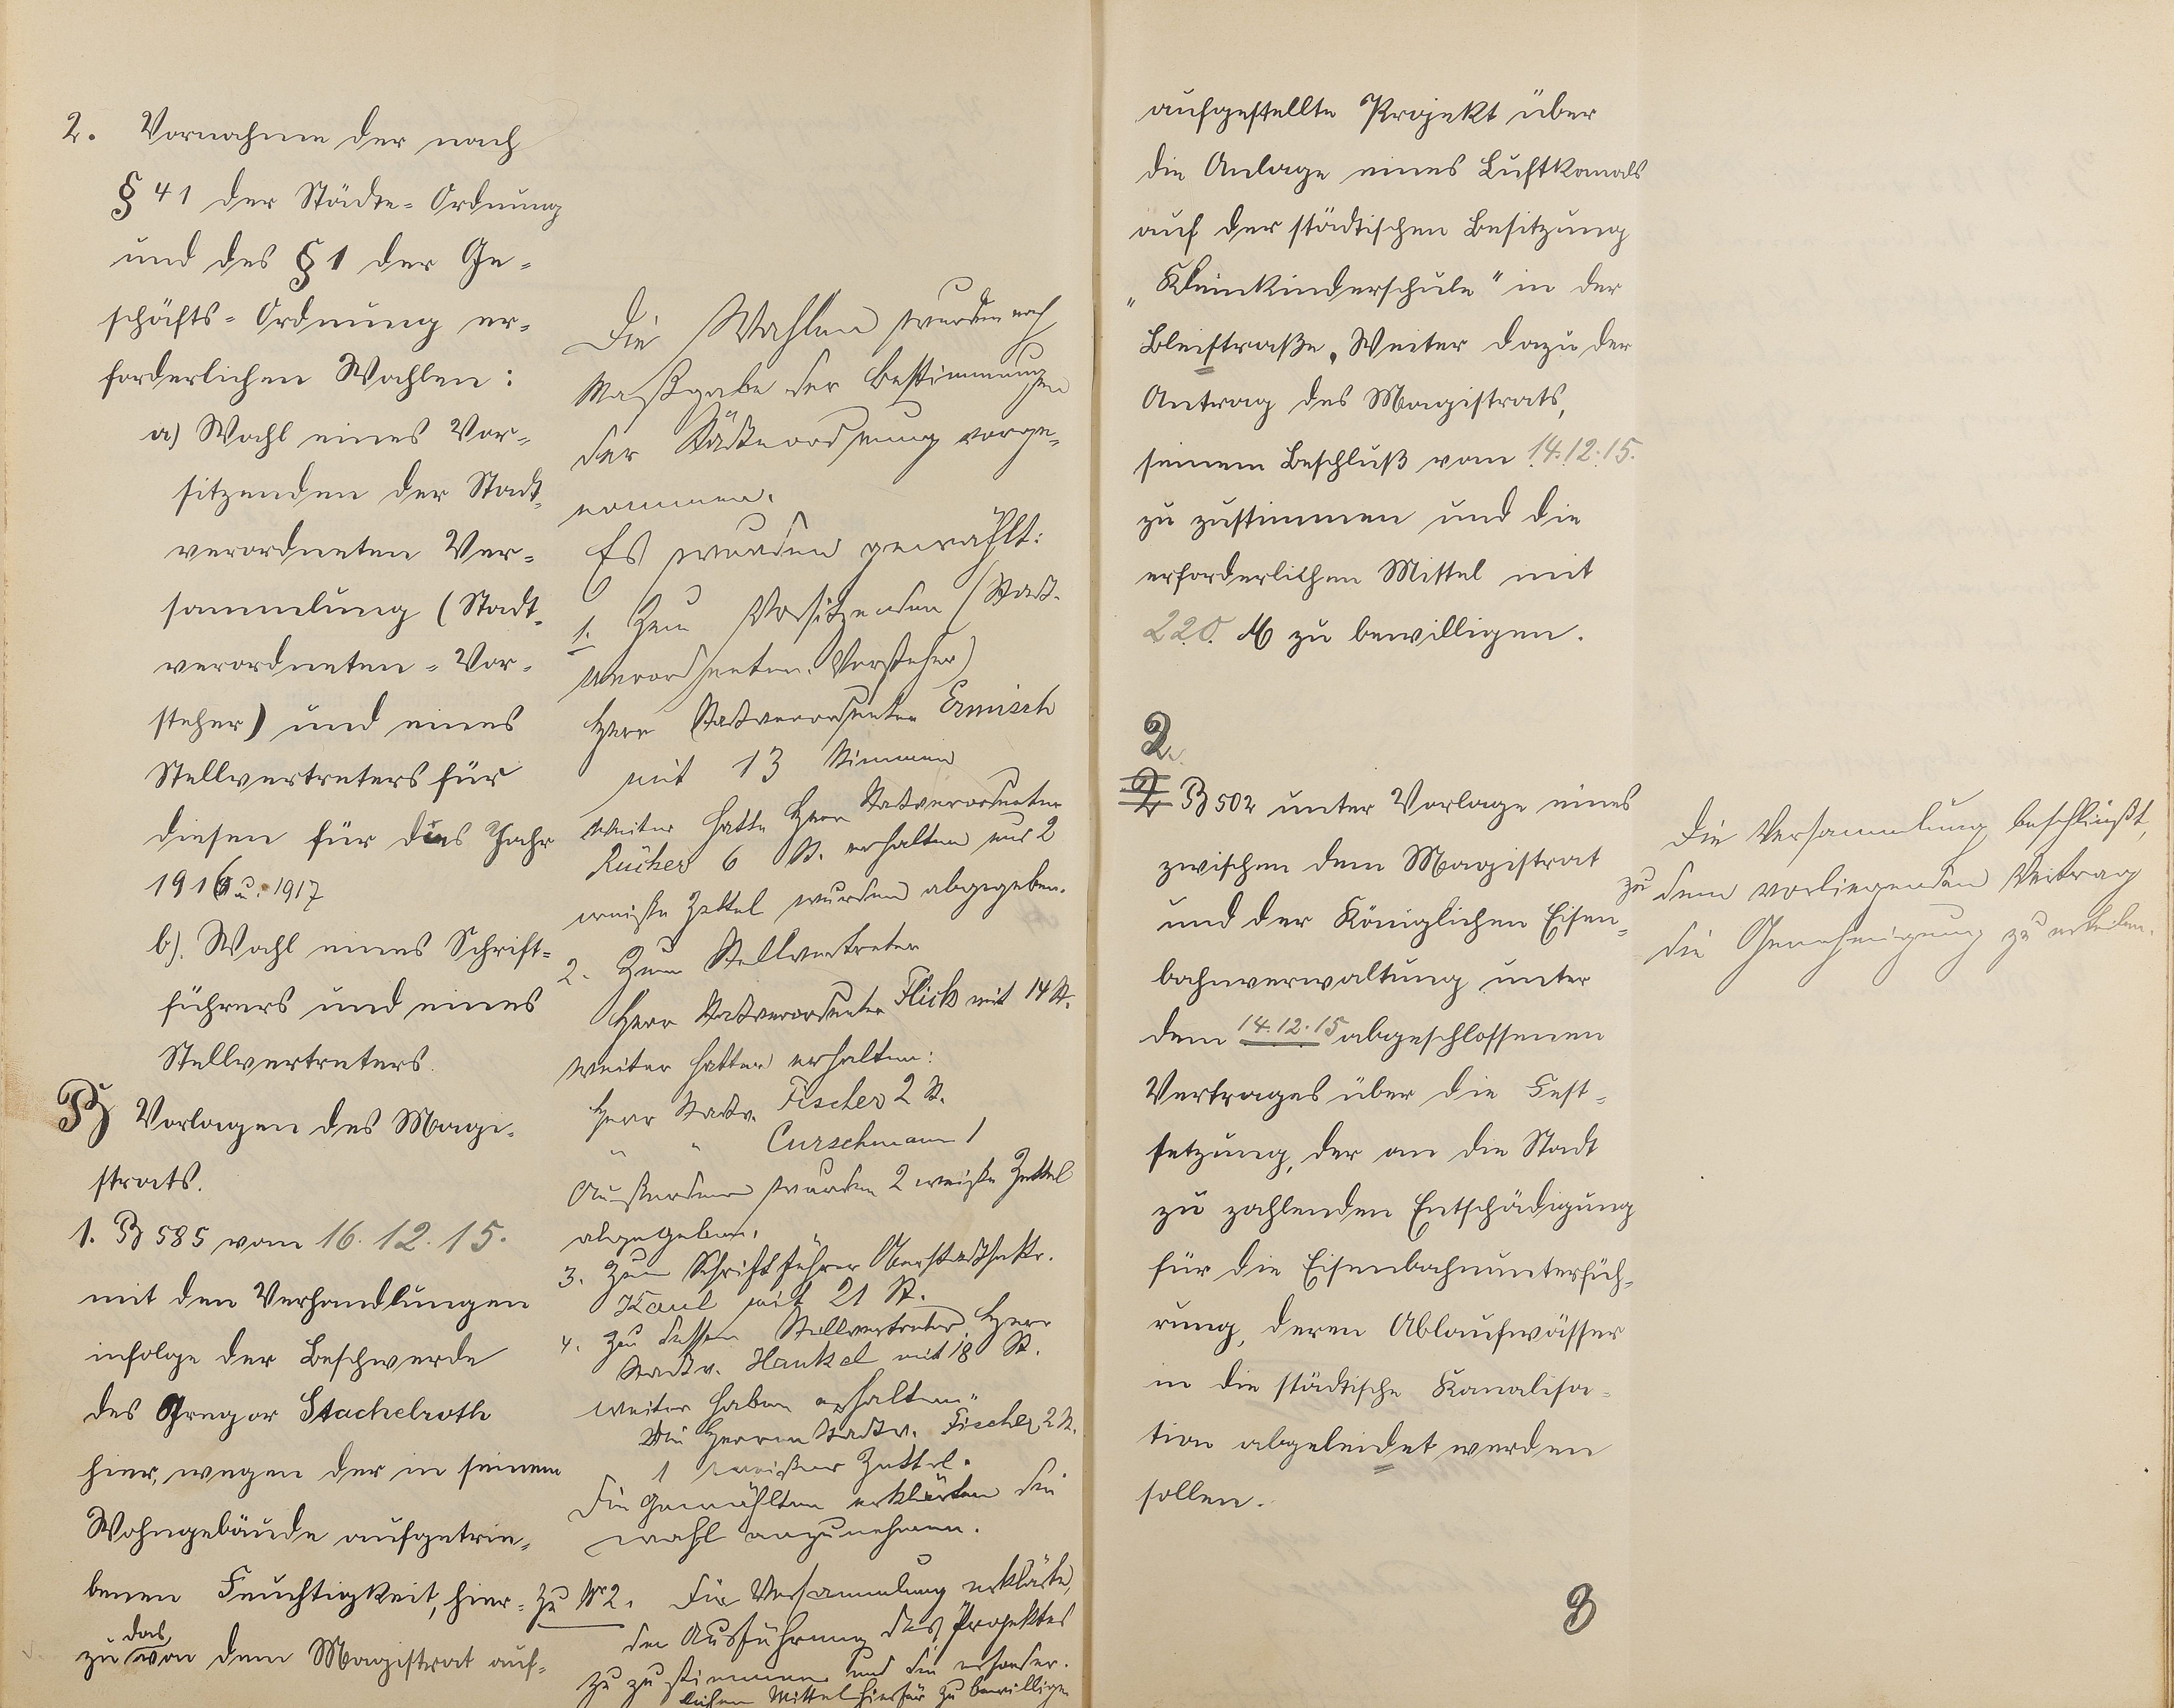 2. Vornahme der nach
§ 41 der Städte-Ordnung
und des § 1 der Ge-
schäfts-Ordnung er-
forderlichen Wahlen:
a) Wahl eines Vor-
sitzenden der Stadt-
verordneten Ver-
sammlung (Stadt-
verordneten-Vor-
steher) und eines
Stellvertreters für
diesen für das Jahr
1916 u. 1917
b). Wahl eines Schrift-
führers und eines
Stellvertreters.
B Vorlagen des Magi-
strats.
1. B 585 vom 16.12.15.
mit den Verhandlungen
infolge der Beschwerde
des Gregor Stachelroth
hier, wegen der in seinem
Wohngebäude aufgetrie-
benen Feuchtigkeit, hier-
zu das von dem Magistrat auf-
Die Wahlen wurden nach
Maßgabe der Bestimmungen
der Städteordnung vorge-
nommen.
Es wurden gewählt:
1. Zum Vorsitzenden (Stadt-
verordneten-Vorsteher)
Herr Stadtverordneter Ermisch
mit 13 Stimmen
Weiter hatte Herr Stadtverordneter
Rücker 6 St. erhalten und 2
weiße Zettel wurden abgegeben.
2. Zum Stellvertreter
Herr Stadtverordneter Flick mit 14 St.
Weiter hatten erhalten:
Herr Stadtv. Fischer 2 St.
" " Curschmann 1
Außerdem wurden 2 weiße Zettel
abgegeben.
3. Zum Schriftführer Oberstadtsekr.
Kaul mit 21 St.
4. Zu dessen Stellvertreter Herr
Stadtv. Hankel mit 18 St.
weiter haben erhalten:
Die Herren Stadtv. Fischer 2 St.
1 weißer Zettel.
Die Gewählten erklärten die
Wahl anzunehmen.
Zu Nr 2. Die Versammlung erklärte,
der Ausführung des Projektes
zu zustimmen und die erforder-
lichen Mittel hierfür zu bewilligen
aufgestellte Projekt über
die Anlage eines Luftkanals
auf der städtischen Besitzung
„Kleinkinderschule" in der
Bleistraße. Weiter dazu der
Antrag des Magistrats,
seinem Beschluß vom 14.12.15.
zu zustimmen und die
erforderlichen Mittel mit
220. M zu bewilligen.
2.
2 B 502 unter Vorlage eines
zwischen dem Magistrat
und der Königlichen Eisen-
bahnverwaltung unter
dem 14.12.15 abgeschlossenen
Vertrages über die Fest-
setzung, der an die Stadt
zu zahlenden Entschädigung
für die Eisenbahnunterfüh-
rung, deren Ablaufwässer
in die städtische Kanalisa-
tion abgeleidet werden
sollen.
Die Versammlung beschließt,
zu dem vorliegenden Vertrag
die Genehmigung zu erteilen.
3